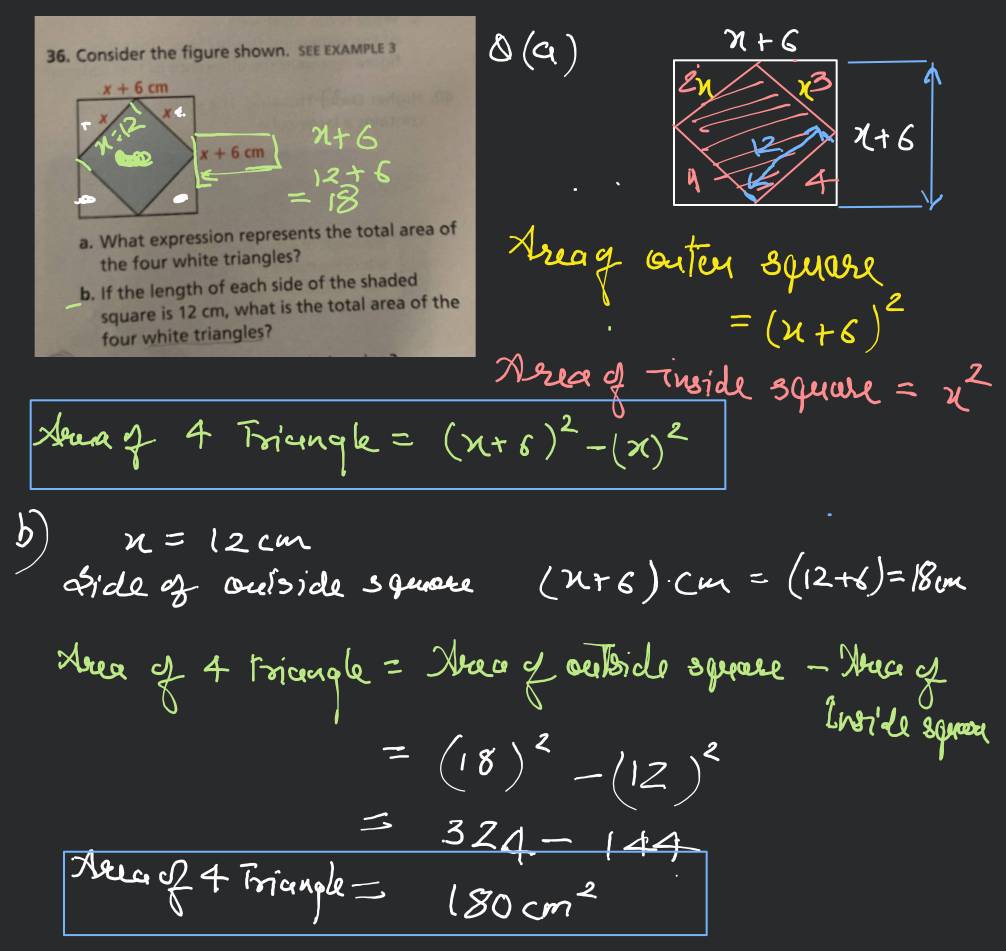 36. Consider the figure shown. SEE EXAMPLE 3
x + 6 cm
x
x
x = 12
x + 6 cm
x+6
12+6
= 18
a. What expression represents the total area of
the four white triangles?
b. If the length of each side of the shaded
square is 12 cm, what is the total area of the
four white triangles?
Q(a)
x+6
2
x
x
3
12
1
4
x+6
Area of outer square
= (x+6)²
Area of inside square = x²
Area of 4 Triangle = (x+6)² - (x)²
b)
x = 12 cm
Side of outside square (x+6).cm = (12+6)=18cm
Area of 4 Triangle = Area of outside square - Area of
Inside square
= (18)² - (12)²
= 324 - 144
Area of 4 Triangle = 180 cm²